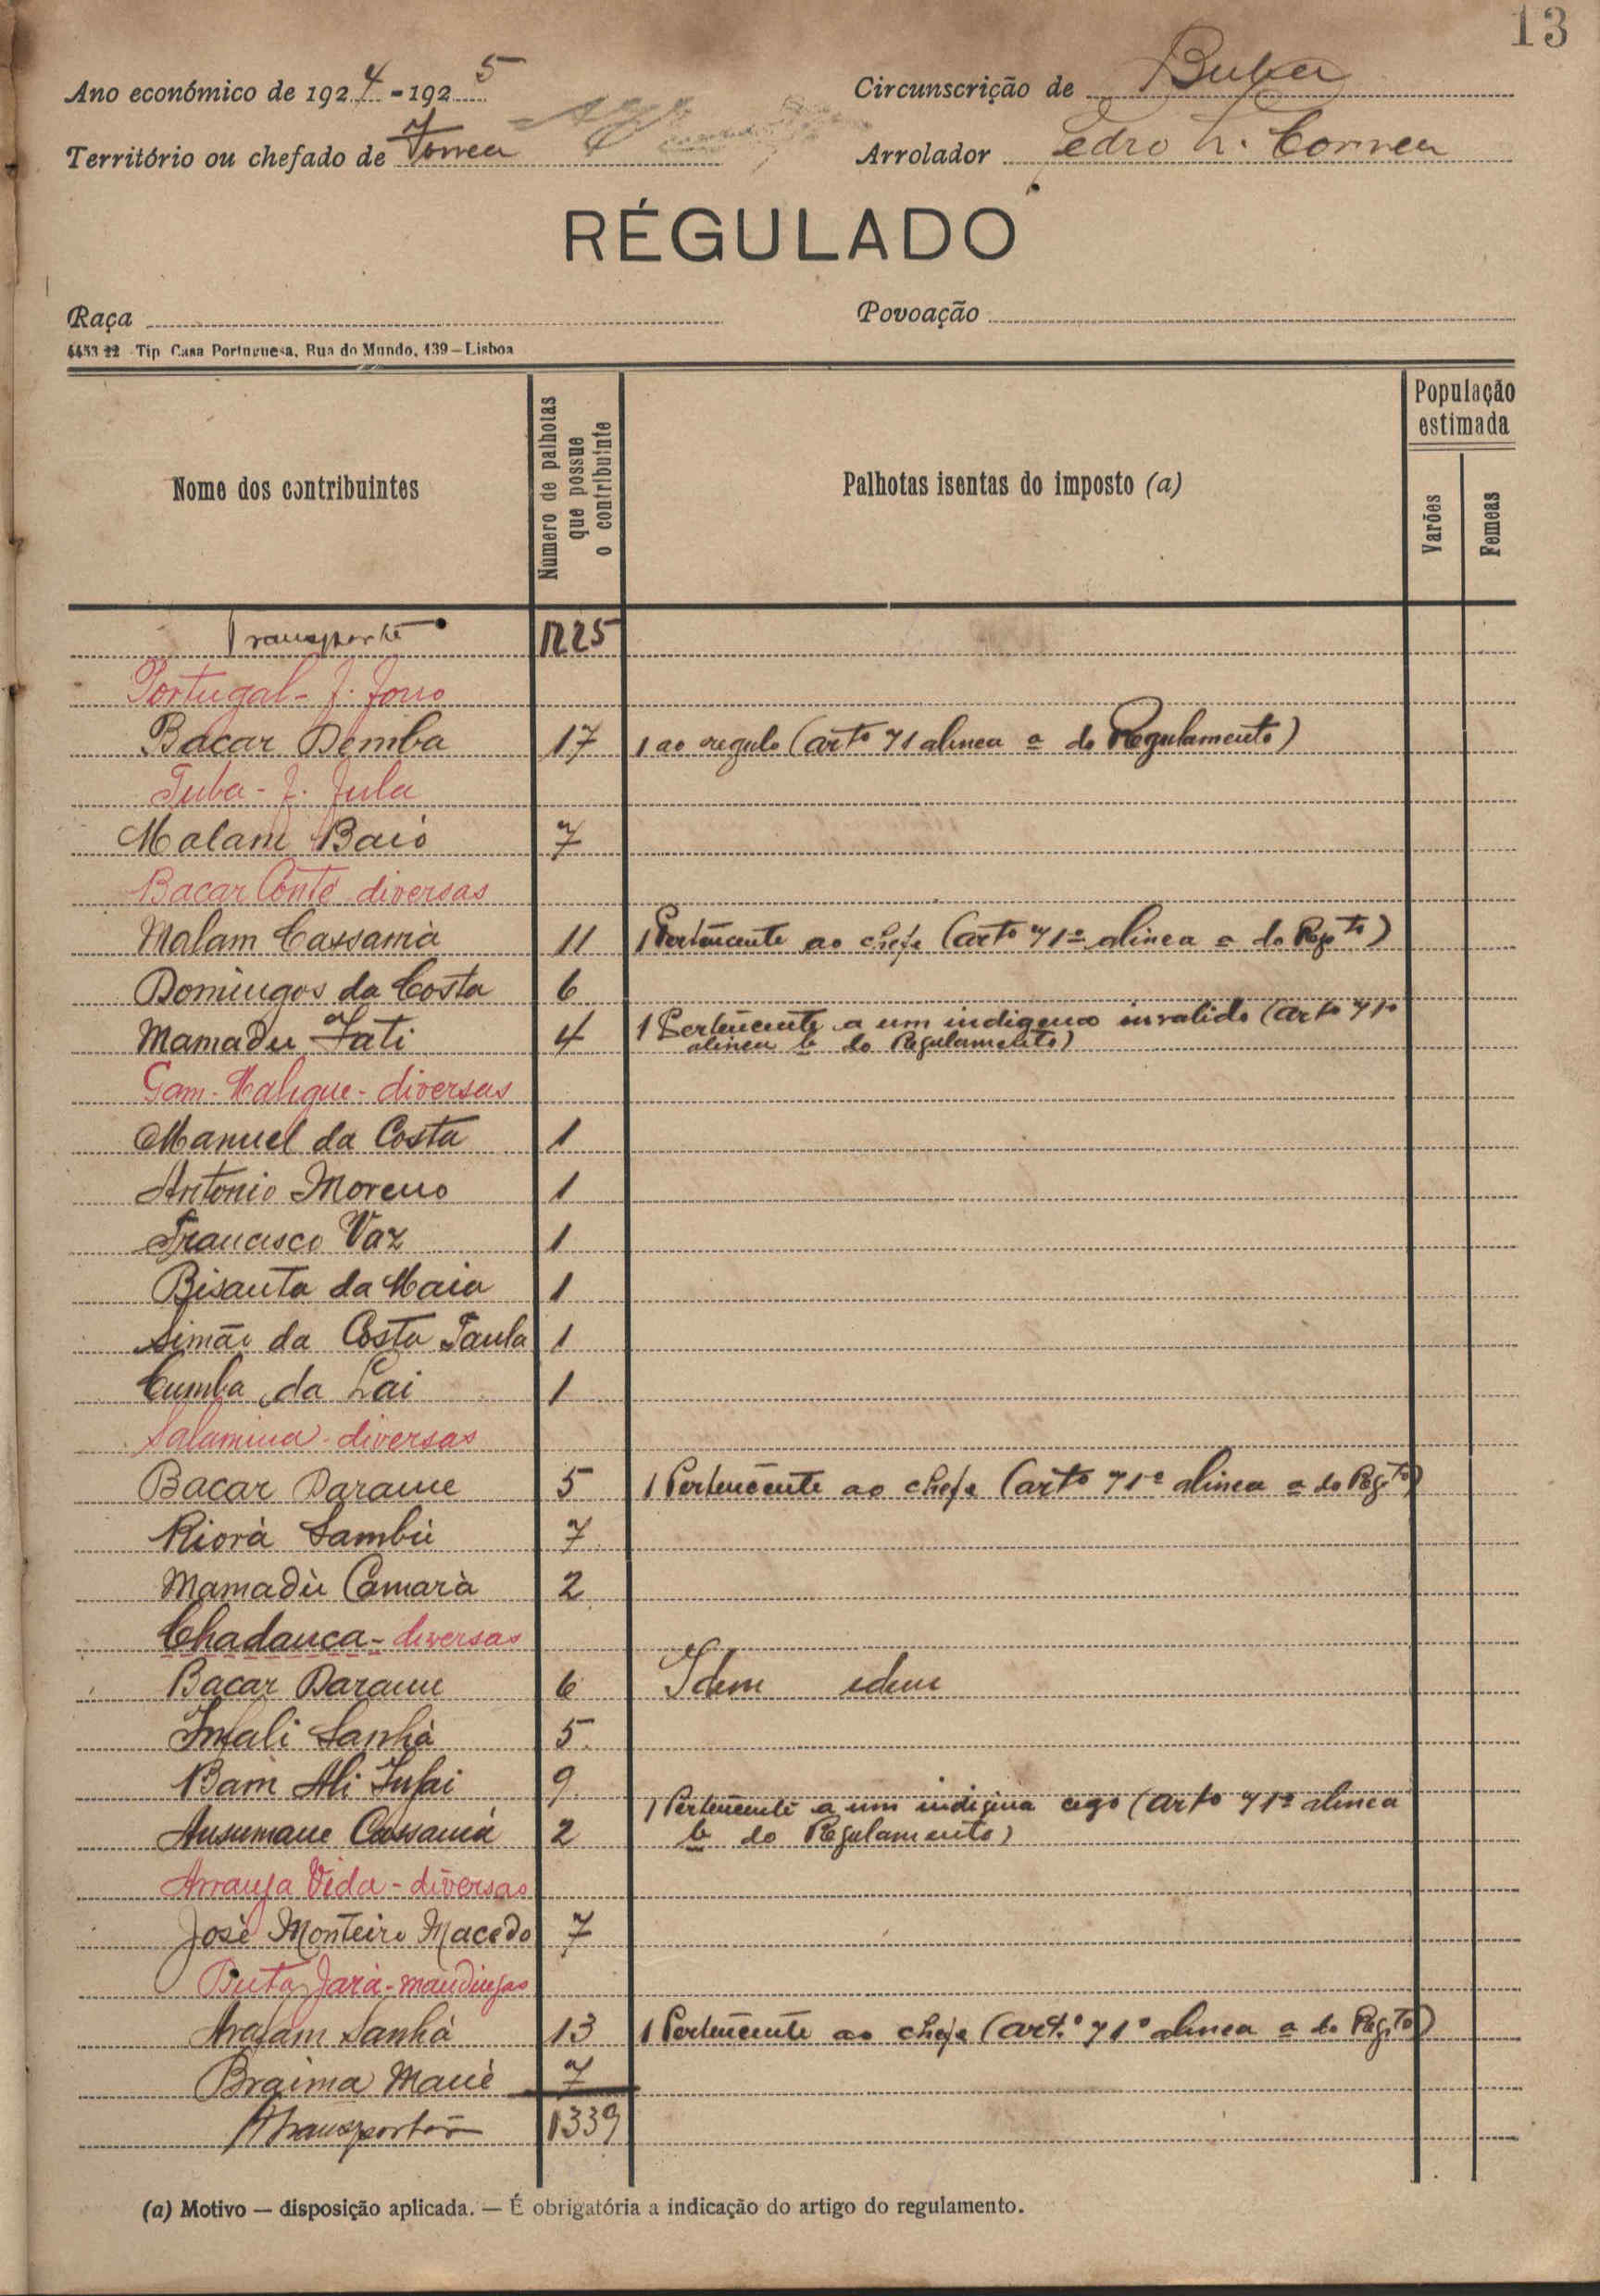 13
Ano económico de 1924-1925
Circunscrição de Buba
Território ou chefado de Forrea
Arrolador Pedro L. Correa
RÉGULADO
Raça
Povoação
Tip Casa Portuguesa, Rua do Mundo, 139—Lisboa
Nome dos contribuintes
Numero de palhotas que possue o contribuinte
Palhotas isentas do imposto (a)
População estimada
Varões
Femeas
Transporte 1225
Portugal - f. forro
Bacar Demba 17 1 ao regulo (arto 71 alinea a do Regulamento)
Tuba - f. fula
Malam Baió 7
Bacar Conté diversas
Malam Cassamà 11 1 Pertencente ao chefe (arto 71º alinea a do Regto)
Domingos da Costa 6
Mamadu Fati 4 1 Pertencente a um indigena invalido (arto 71º
alinea b do Regulamento)
Gam-Malique-diversas
Manuel da Costa 1
Antonio Moreno 1
Francisco Vaz 1
Bisanta da Maia 1
Simão da Costa Paula 1
Cumba da Lai 1
Salamina-diversas
Bacar Darame 5 1 Pertencente ao chefe (arto 71º alinea a do Regto)
Riorà Sambù 7
Mamadù Camarà 2
Chadauca-diversas
Bacar Darame 6 Idem idem
Infali Sanhà 5
Bam Ali Jufai 9
1 Pertencente a um indigina cego (arto 71º alinea
Ansumane Cassamà 2 b do Regulamento)
Arranja Vida - diversas
José Monteiro Macedo 7
Buta Jarà-mandingas
Arafam Sanhà 13 1 Pertencente ao chefe (art.º 71º alinea a do Regto)
Braima Mané 7
Transportar 1339
(a) Motivo — disposição aplicada. — É obrigatória a indicação do artigo do regulamento.